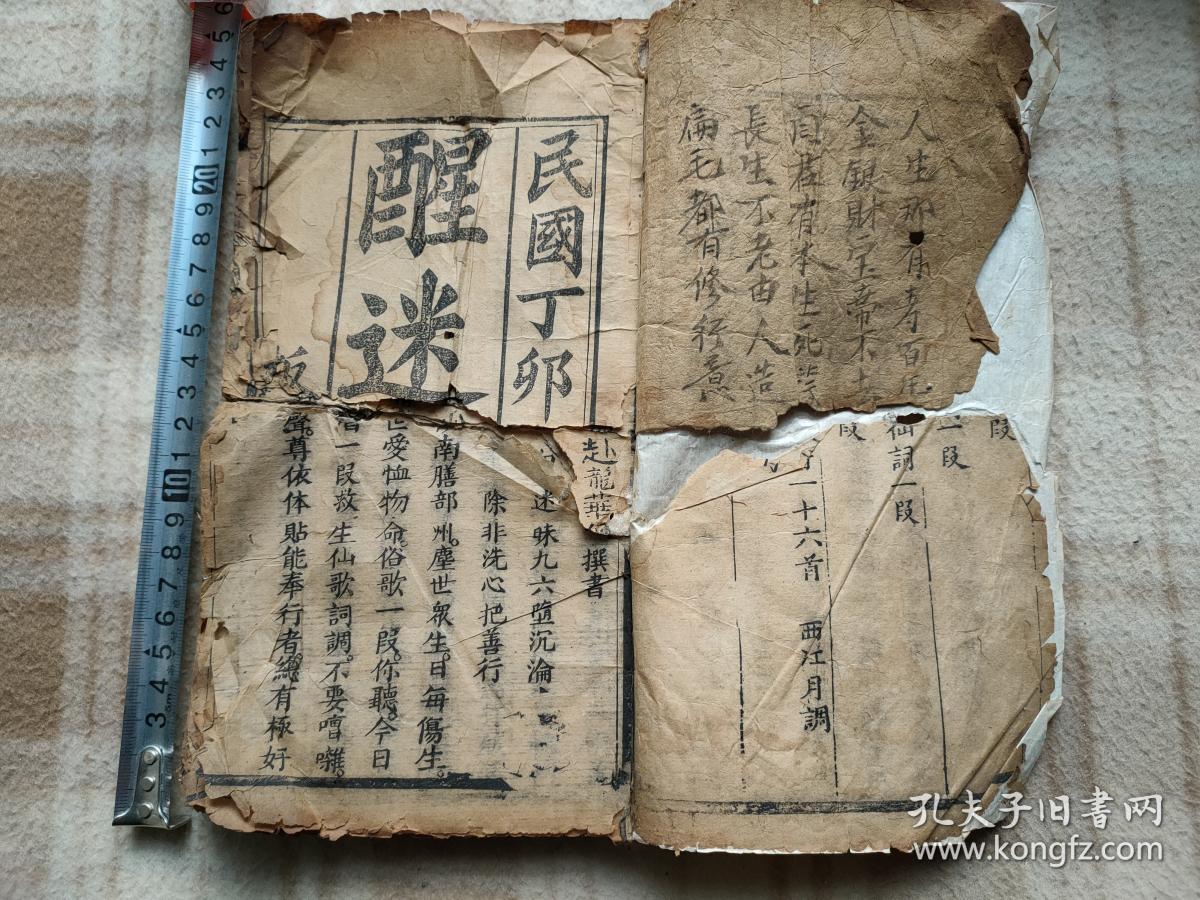 人生那有寿百年
金銀財宝帝不
有本生死
長生不老由人造
徧毛都有修行意
民國丁卯
醒迷
段
一段
仙詞一段
段
一十六首 西江月調
赴龍華
撰書
迷昧九六墮沉淪
除非洗心把善行
南膳部州。塵世衆生。日每傷生。
世愛恤物命。俗歌一段。你聽。今日
一段救生仙歌詞調。不要嘈囃。
聲。尊依体貼能奉行者。總有極好
孔夫子旧书网
www.kongfz.com